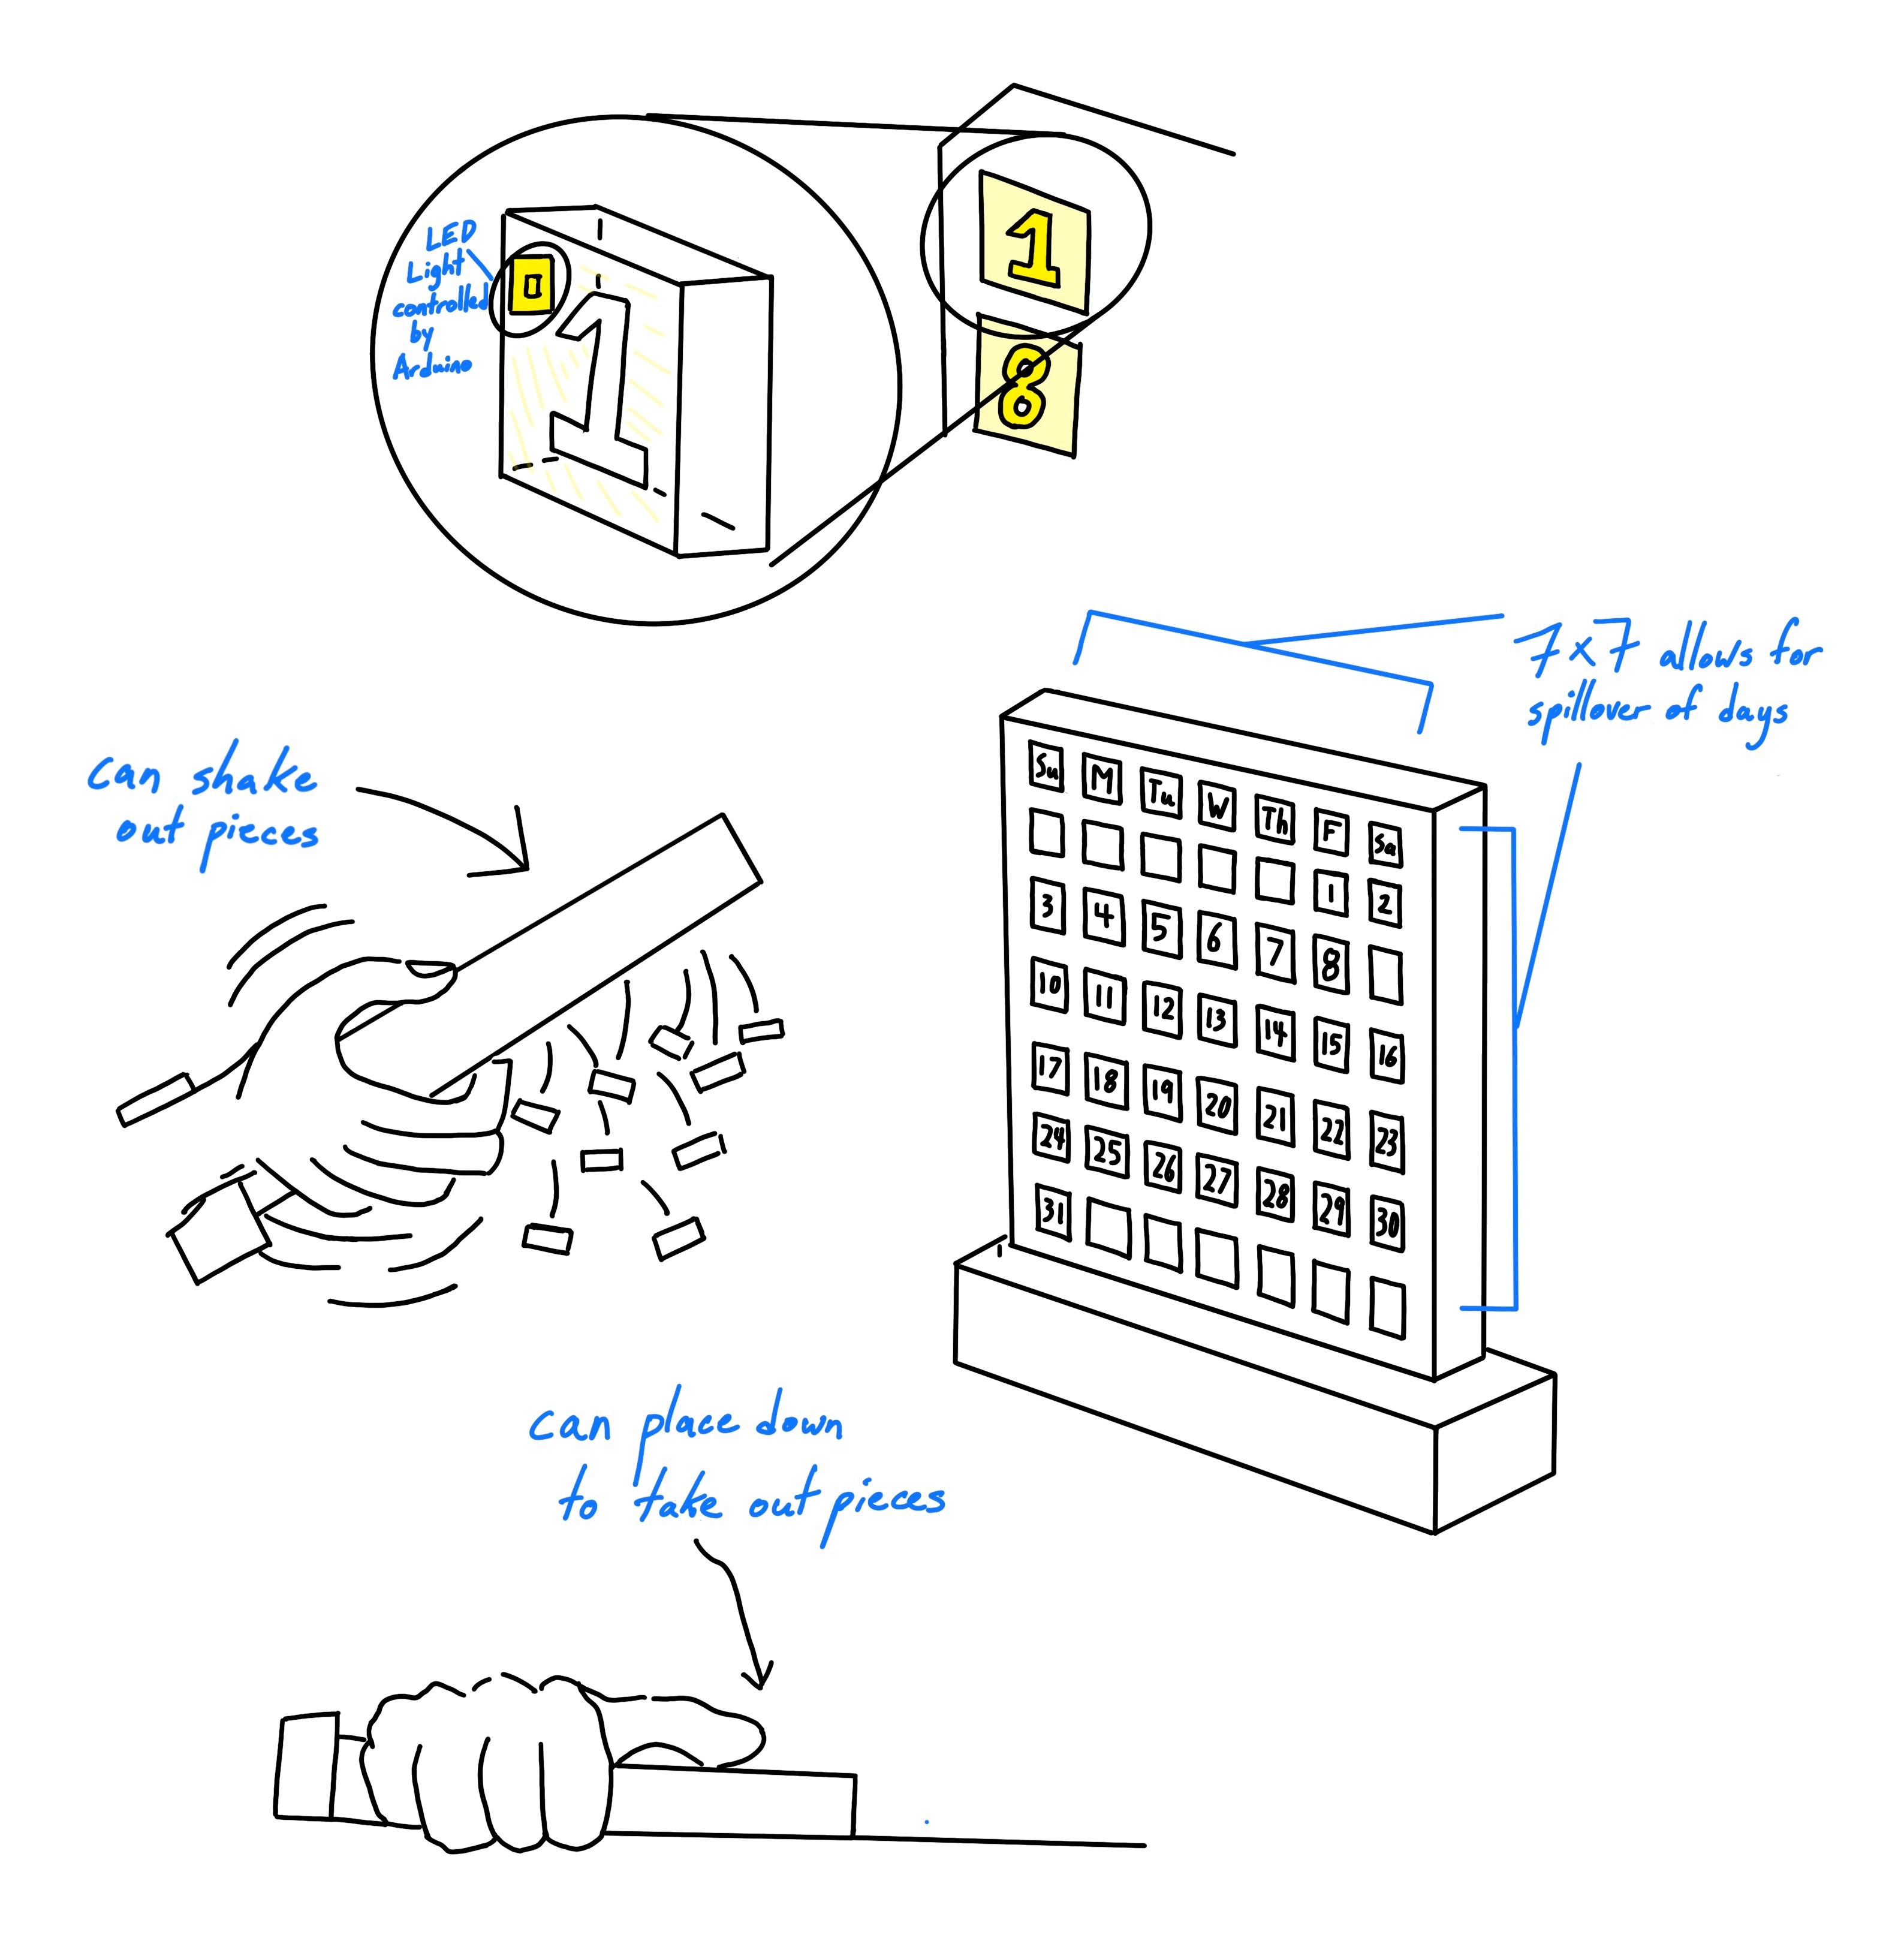 LED
Light
controlled
by
Arduino
1
1
8
7x7 allows for
spillover of days
can shake
out pieces
Su M Tu W Th F Sa
1 2
3 4 5 6 7 8
10 11 12 13 14 15 16
17 18 19 20 21 22 23
24 25 26 27 28 29 30
31
can place down
to take out pieces